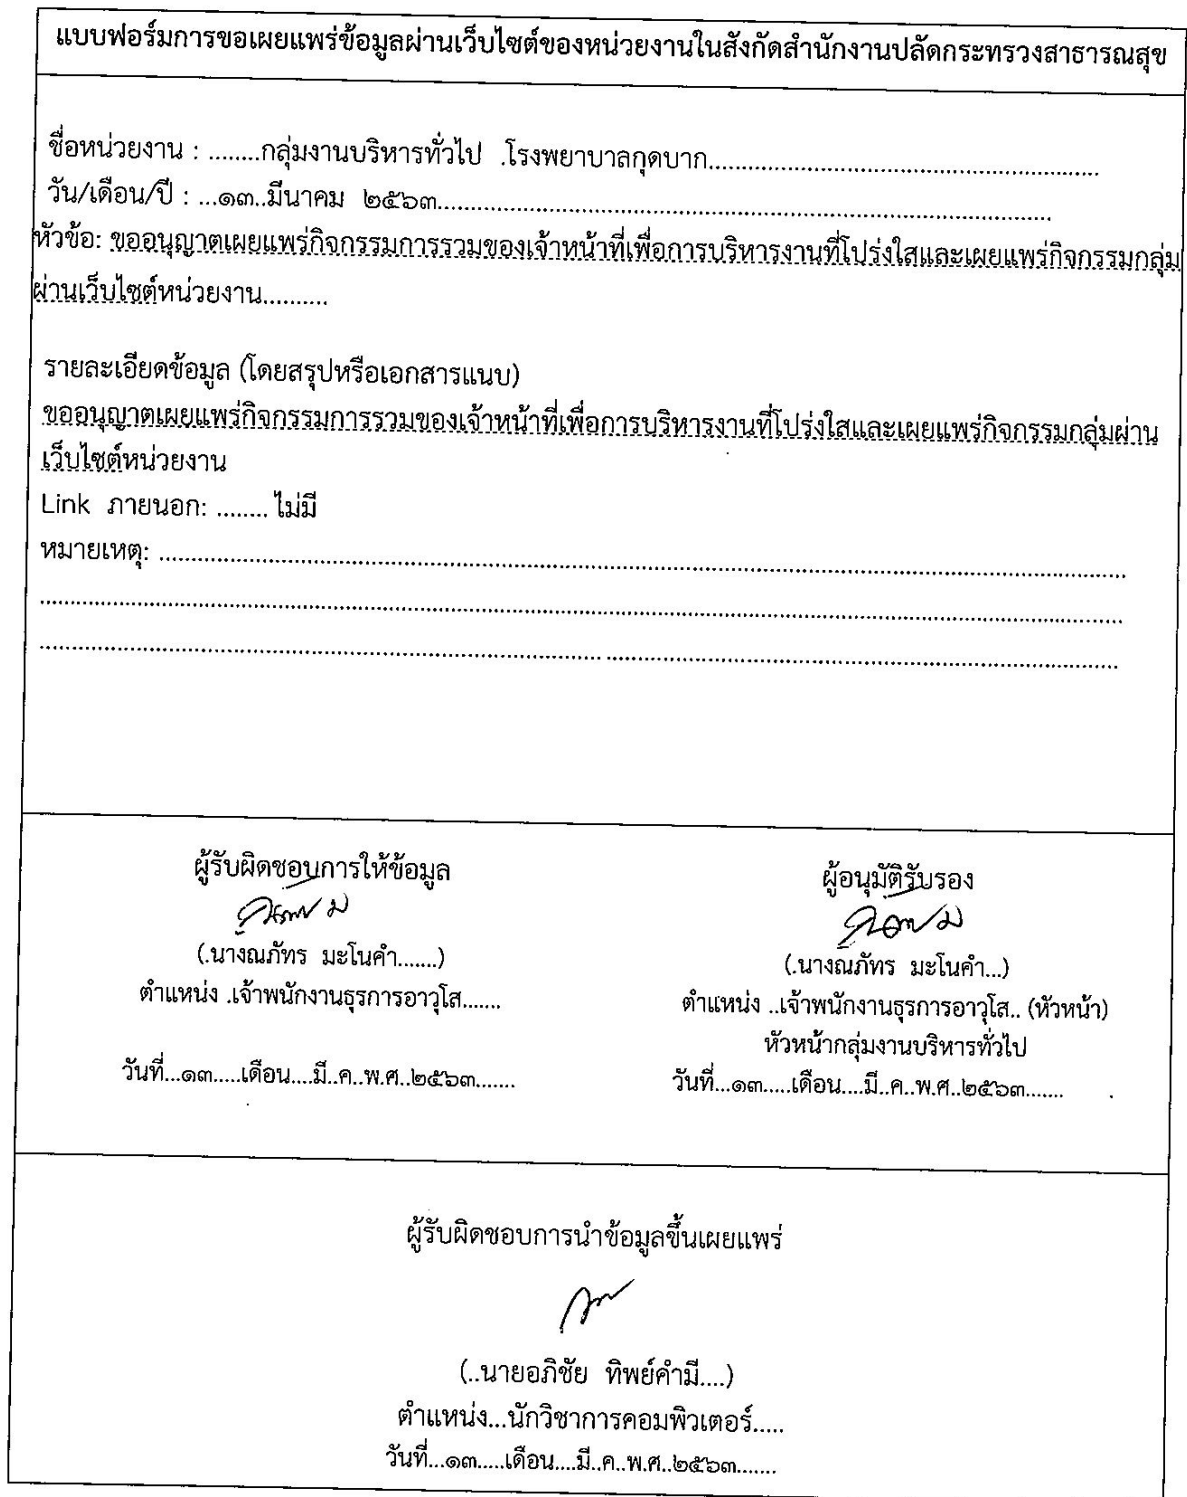 แบบฟอร์มการขอเผยแพร่ข้อมูลผ่านเว็บไซต์ของหน่วยงานในสังกัดสำนักงานปลัดกระทรวงสาธารณสุข
ชื่อหน่วยงาน : ........กลุ่มงานบริหารทั่วไป .โรงพยาบาลกุดบาก..........................................................
วัน/เดือน/ปี : ...๑๓..มีนาคม ๒๕๖๓..........................................................................................
หัวข้อ: ขออนุญาตเผยแพร่กิจกรรมการรวมของเจ้าหน้าที่เพื่อการบริหารงานที่โปร่งใสและเผยแพร่กิจกรรมกลุ่ม
ผ่านเว็บไซต์หน่วยงาน..........
รายละเอียดข้อมูล (โดยสรุปหรือเอกสารแนบ)
ขออนุญาตเผยแพร่กิจกรรมการรวมของเจ้าหน้าที่เพื่อการบริหารงานที่โปร่งใสและเผยแพร่กิจกรรมกลุ่มผ่าน
เว็บไซต์หน่วยงาน
Link ภายนอก: ........ ไม่มี
หมายเหตุ: ..............................................................................................................
ผู้รับผิดชอบการให้ข้อมูล
(.นางณภัทร มะโนคำ.......)
ตำแหน่ง .เจ้าพนักงานธุรการอาวุโส.......
วันที่...๑๓.....เดือน....มี..ค..พ.ศ..๒๕๖๓.......
ผู้อนุมัติรับรอง
(.นางณภัทร มะโนคำ...)
ตำแหน่ง ..เจ้าพนักงานธุรการอาวุโส.. (หัวหน้า)
หัวหน้ากลุ่มงานบริหารทั่วไป
วันที่...๑๓.....เดือน....มี..ค..พ.ศ..๒๕๖๓.......
ผู้รับผิดชอบการนำข้อมูลขึ้นเผยแพร่
(..นายอภิชัย ทิพย์คำมี....)
ตำแหน่ง...นักวิชาการคอมพิวเตอร์.....
วันที่...๑๓.....เดือน....มี..ค..พ.ศ..๒๕๖๓.......